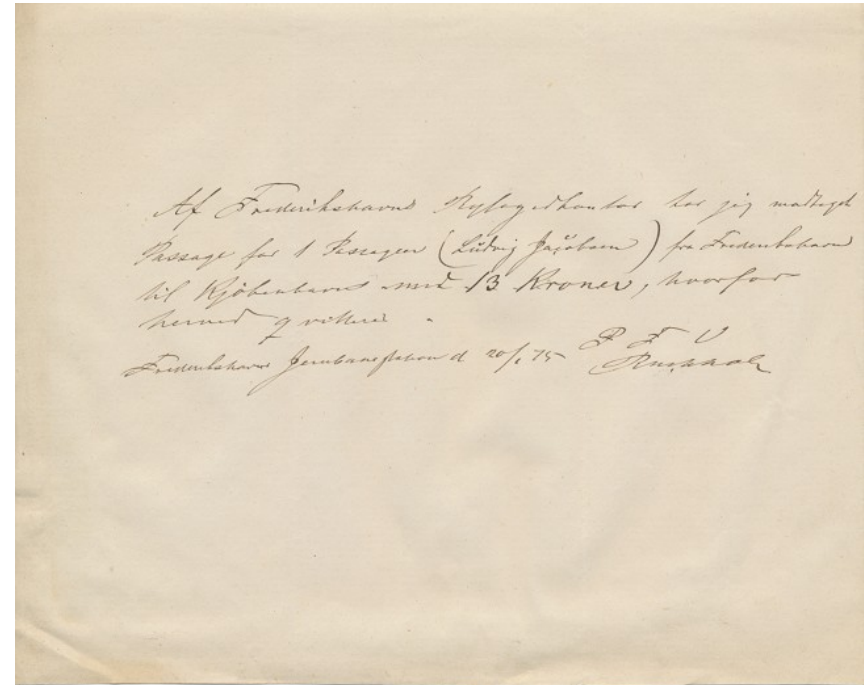 Af Frederikshavns Byfogedkontor har jeg modtaget
Passage for 1 Passager (Ludvig Jacobsen) fra Frederikshavn
til Kjöbenhavn med 13 Kroner, hvorfor
herved qvitteres.
Frederikshavns Jernbanestation d 20/1 75 P F V